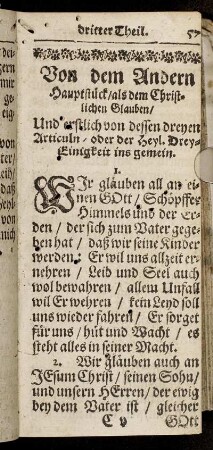 dritter Theil.
Von dem Andern
Hauptstück / als dem Christ-
lichen Glauben /
Und erstlich von dessen dreyen
Articuln / oder der Heyl. Drey-
Einigkeit ins gemein.
1.
WIr gläuben all an ei-
nen GOtt / Schöpffer
Himmels und der Er-
den / der sich zum Vater gege-
ben hat / daß wir seine Kinder
werden. Er wil uns allzeit er-
nehren / Leib und Seel auch
wol bewahren / allem Unfall
wil Er wehren / kein Leyd soll
uns wieder fahren / Er sorget
für uns / hüt und Wacht / es
steht alles in seiner Macht.
2. Wir gläuben auch an
JEsum Christ / seinen Sohn /
und unsern HErren / der ewig
bey dem Vater ist / gleicher
C v GOtt